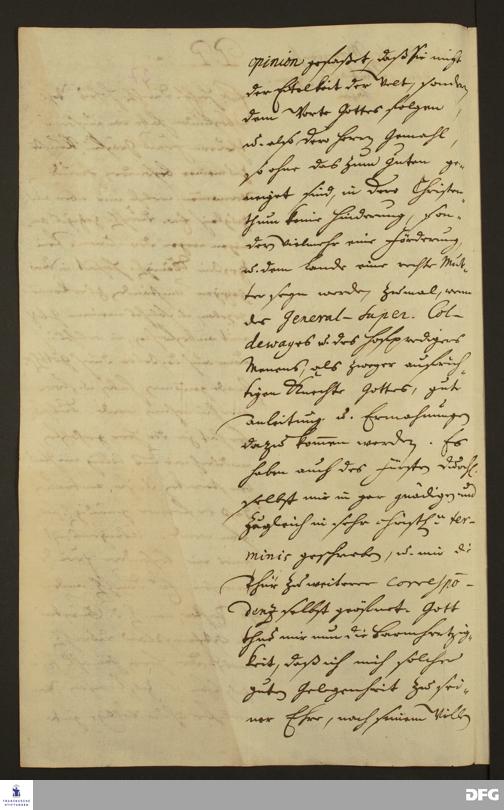 opinion gefaßet, daß Sie nicht
der Eitelkeit der Welt, sondern
dem Worte Gottes folgen,
u. also dero Herrn Gemahl,
so ohne das zum Guten ge-
neiget sind, in dero Christen-
thum keine Hinderung, son-
dern vielmehr eine Förderung,
u. dem Lande eine rechte Mut-
ter seyn werden, zumal, wenn
des General-Super. Col-
dewayes u. des Hofpredigers
Menens, als zweyer aufrich-
tigen Knechte Gottes, gute
Anleitung u. Ermahnungen
dazu kommen werden. Es
haben auch des Fürsten Durchl.
selbst mir in gar gnädigen und
zugleich in sehr Christl. ter-
minis geschrieben, u. mir die
Thür zu weiterer Correspon-
denz selbst geöffnet. Gott
thue mir nun die Barmhertzig-
keit, daß ich mich solcher
guten Gelegenheit zu sei-
ner Ehre, nach seinem Willen
FRANCKESCHE
STIFTUNGEN
DFG